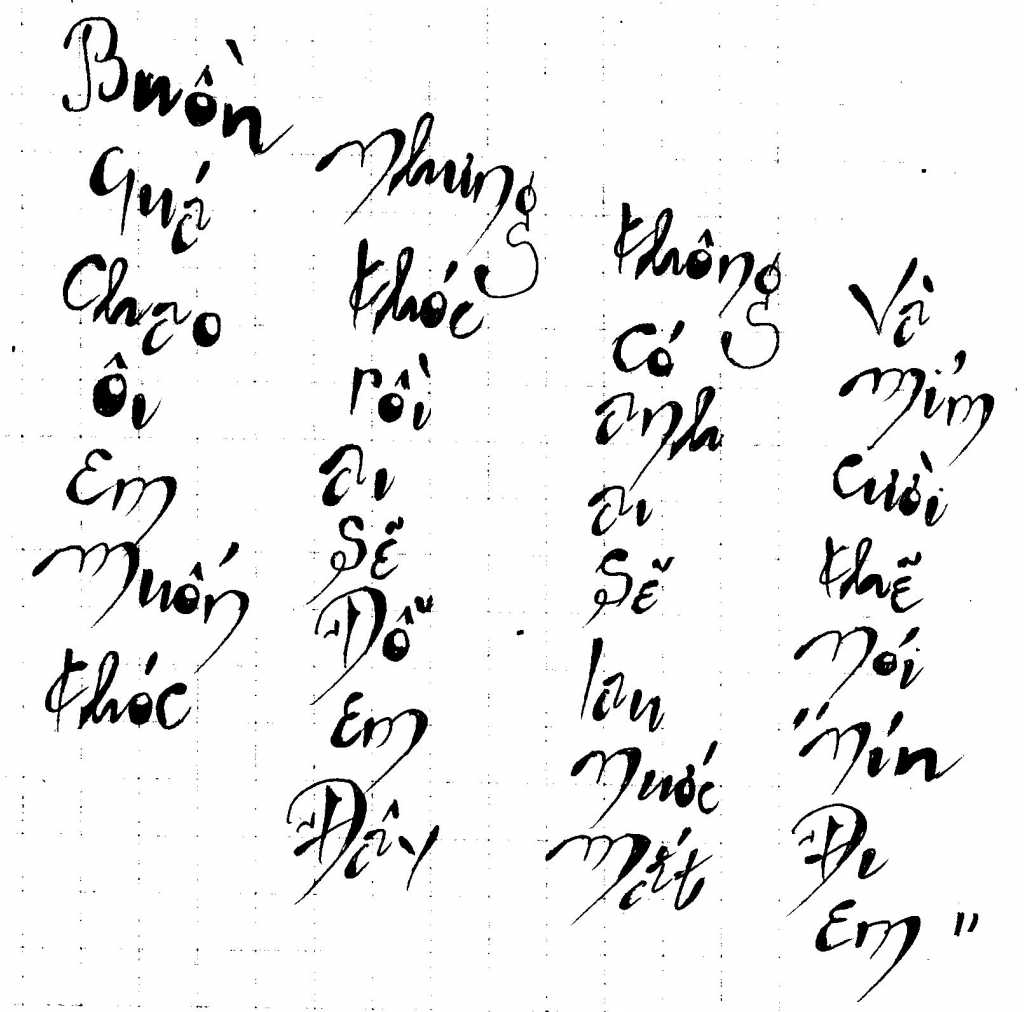 Buồn Quá Chao ôi Em Muốn khóc
Nhưng khóc rồi ai sẽ Đỗ Em Đây
không Có anh ai sẽ lau Nước Mắt
Và Mỉm Cười khẽ Nói "Nín Đi Em"